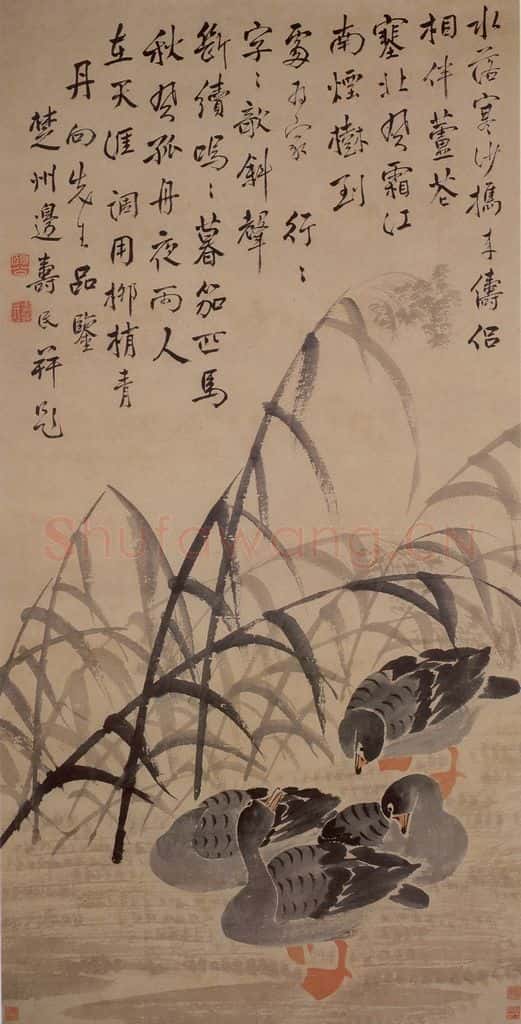 水落寒沙攜来儔侣
相伴蘆花
塞北風霜江
南煙樹到
處为家 行〻
字〻欹斜聲
斷續嗚〻暮笳匹馬
秋風孤舟夜雨人
在天涯調用柳梢青
丹向先生品鑒
楚州邊壽民并題
Shufawang.CN